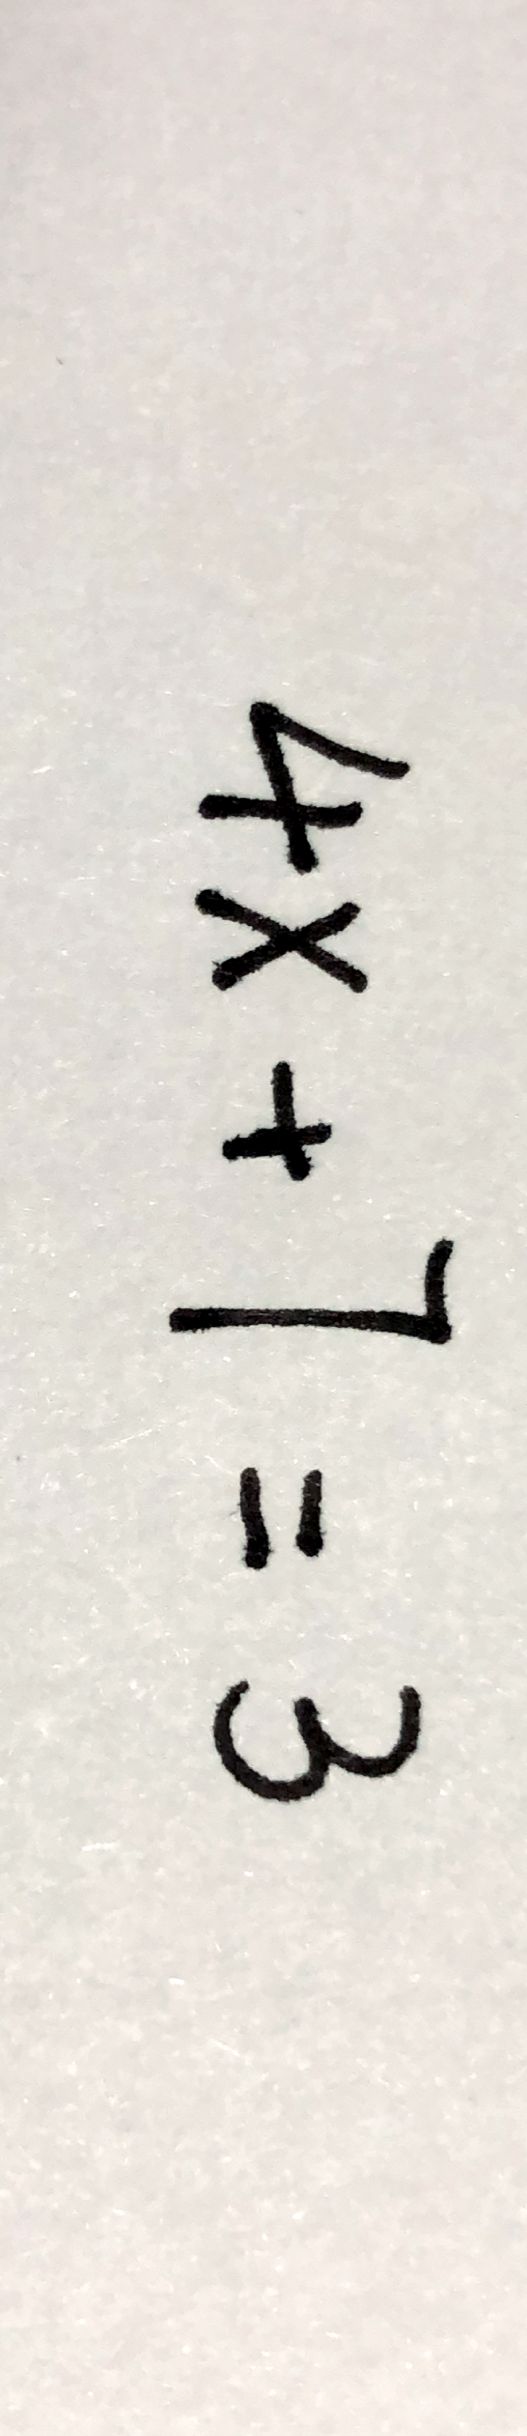 4x + 7 = 3